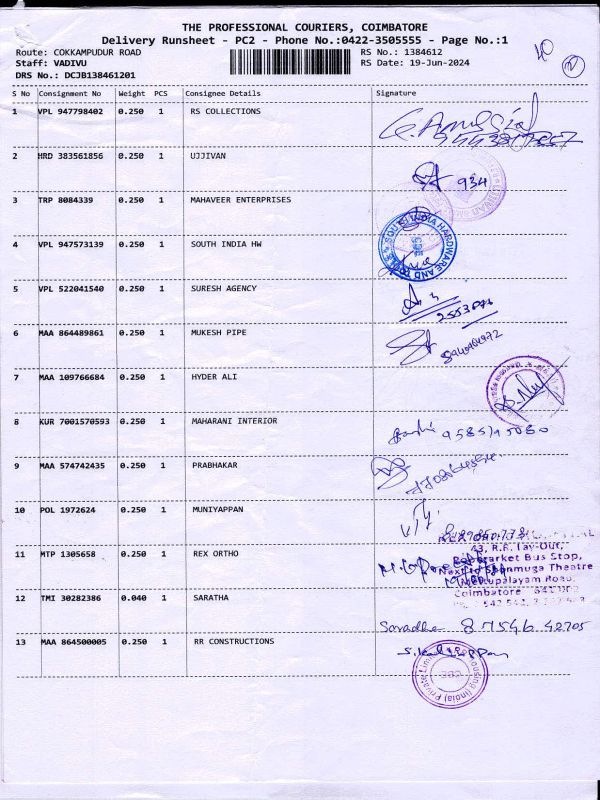 THE PROFESSIONAL COURIERS, COIMBATORE
Delivery Runsheet - PC2 - Phone No.:0422-3505555 - Page No.:1
Route: COKKAMPUDUR ROAD RS No.: 1384612
Staff: VADIVU RS Date: 19-Jun-2024
DRS No.: DCJB138461201
S No Consignment No Weight PCS Consignee Details Signature
1 VPL 947798402 0.250 1 RS COLLECTIONS
2 HRD 383561856 0.250 1 UJJIVAN
934
3 TRP 8084339 0.250 1 MAHAVEER ENTERPRISES
4 VPL 947573139 0.250 1 SOUTH INDIA HW
SOUTH INDIA HARDWARE AND TOOLS
CBE
5 VPL 522041540 0.250 1 SURESH AGENCY
6 MAA 864489861 0.250 1 MUKESH PIPE
7 MAA 109766684 0.250 1 HYDER ALI
8 KUR 7001570593 0.250 1 MAHARANI INTERIOR
9 MAA 574742435 0.250 1 PRABHAKAR
10 POL 1972624 0.250 1 MUNIYAPPAN
11 MTP 1305658 0.250 1 REX ORTHO
43, R.R. Lay-Out,
Bus Stop,
Next to Shanmuga Theatre
Mettupalayam Road,
Coimbatore
12 TMI 30282386 0.040 1 SARATHA
Saradha 87546 42705
13 MAA 864500005 0.250 1 RR CONSTRUCTIONS
Housing (India) Private